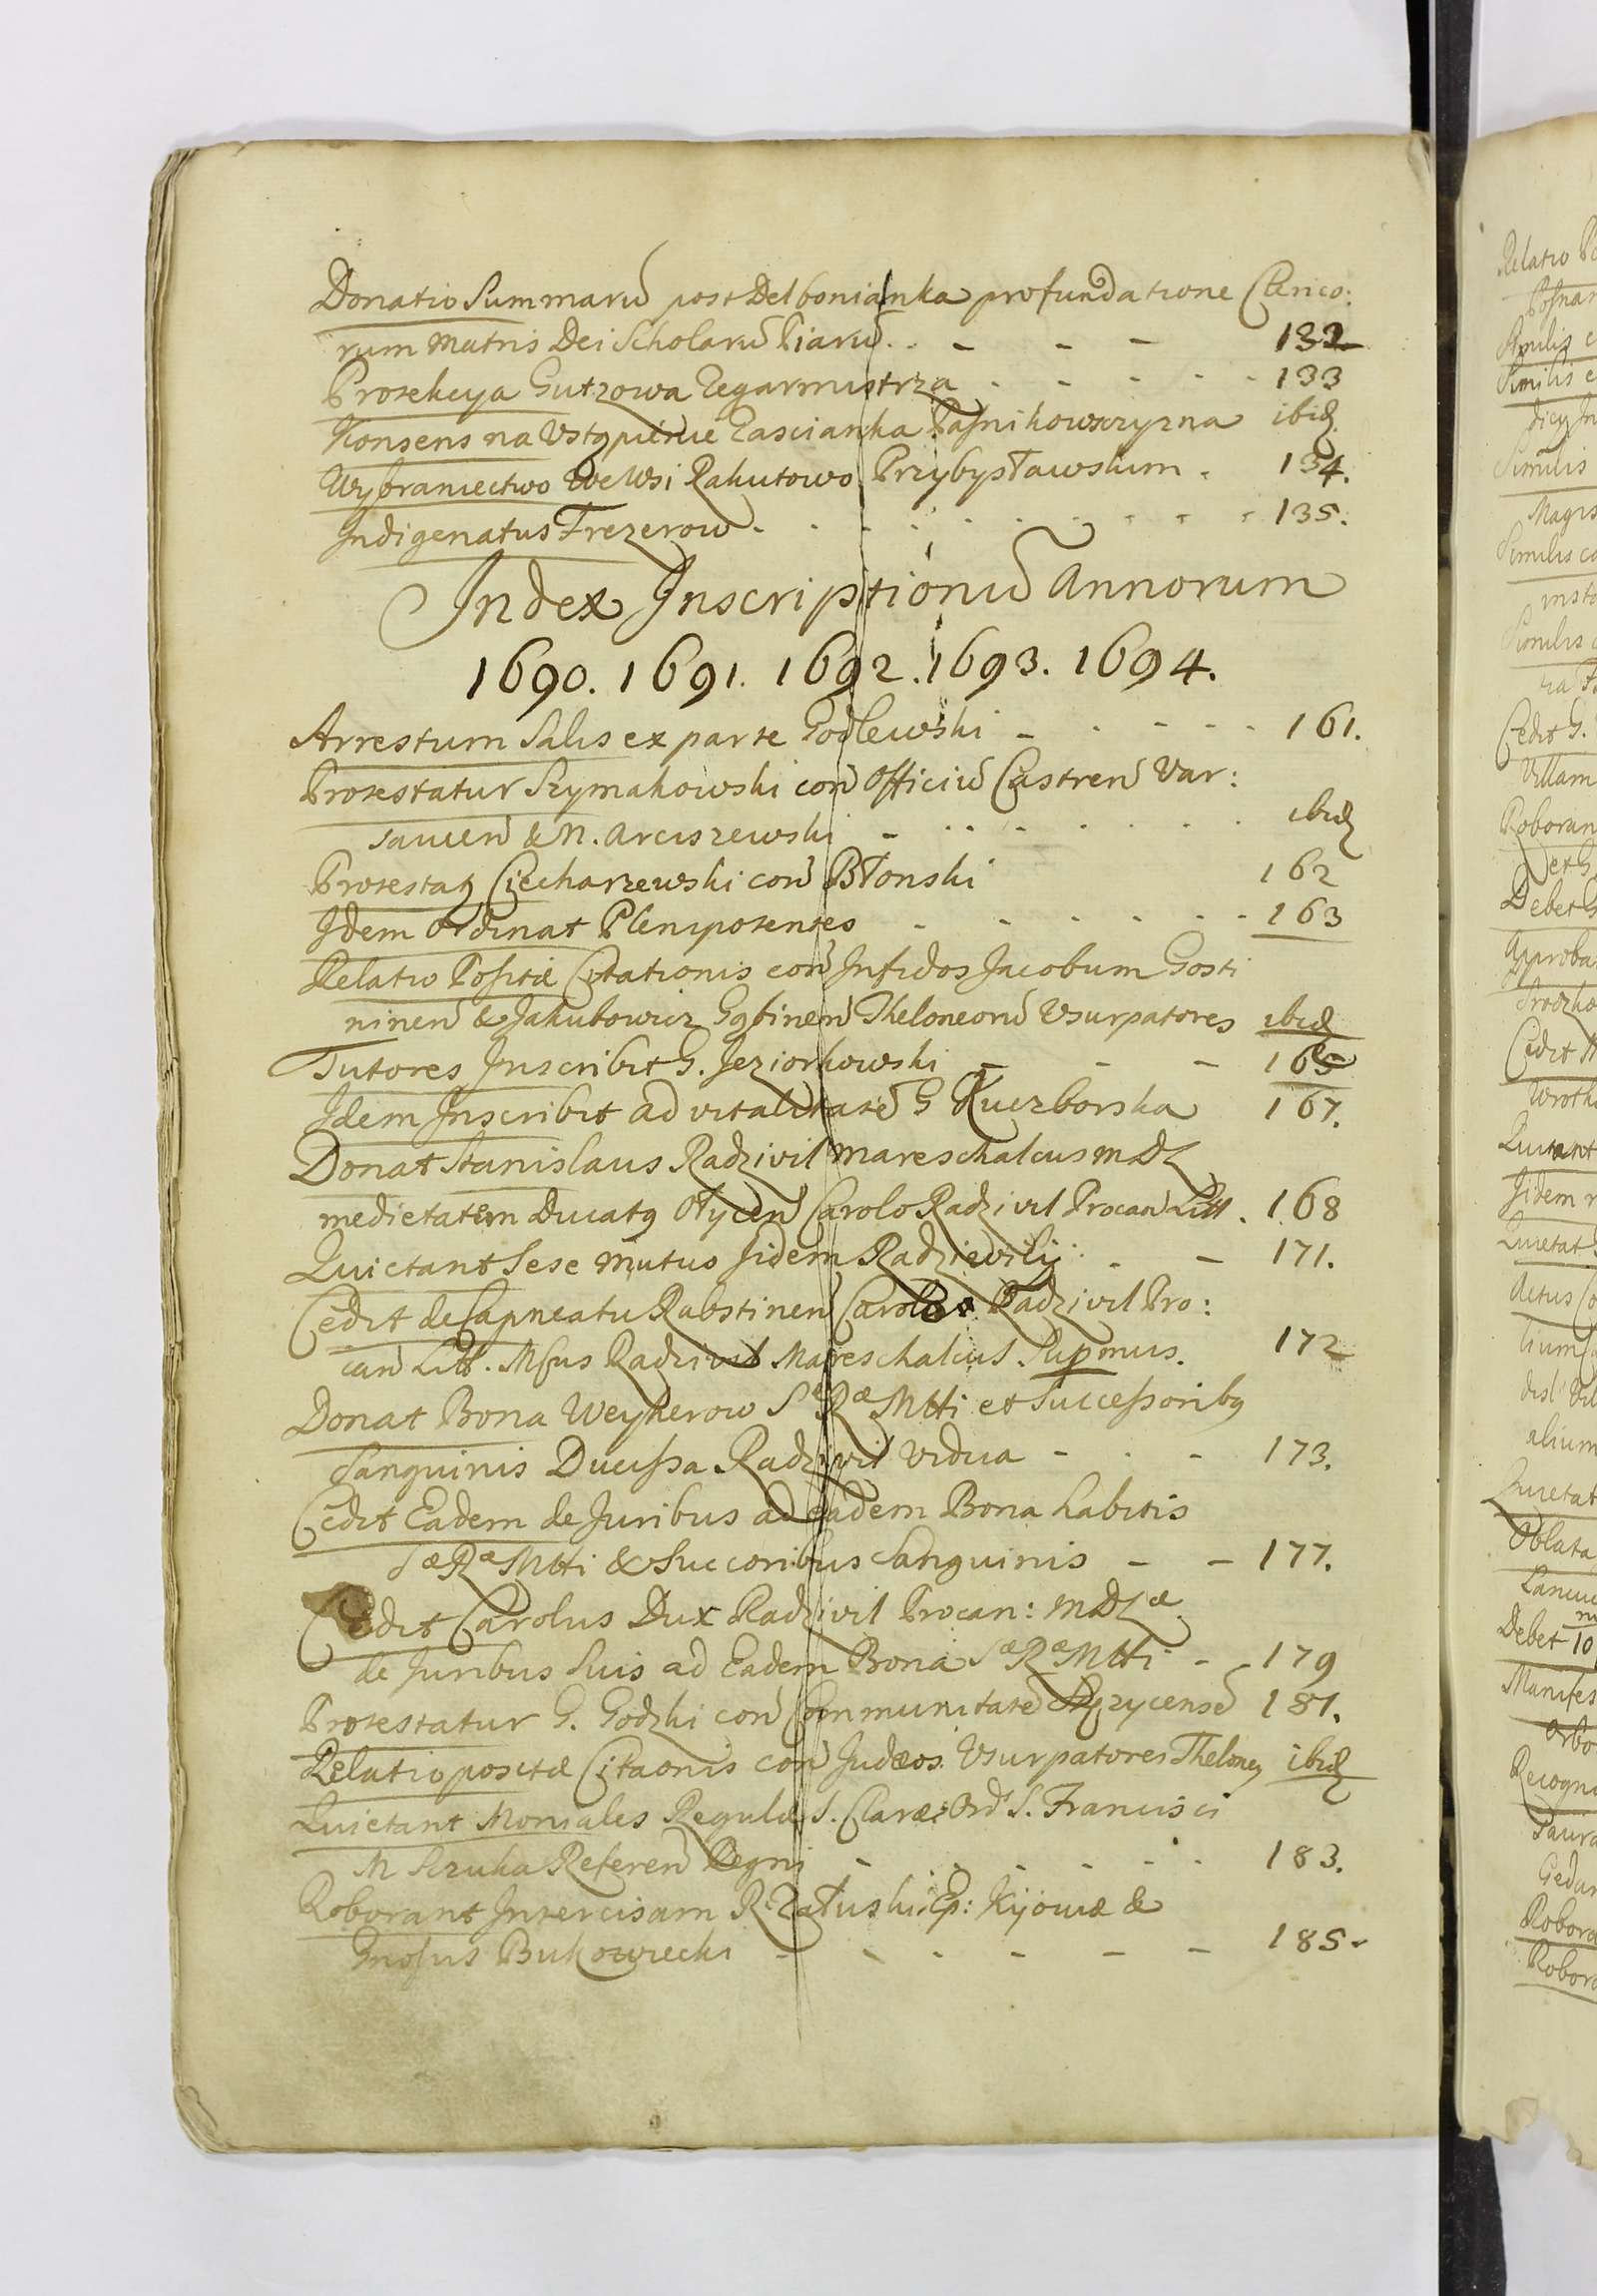 Donatio Summarū post Delbonianka pro fundatione Clerico:
rum Matris Dei Scholarū Piarū 132
Protekcya Gutzowa Zegarmistrza 133
Konsens na Vstąpienie Zascianka Paśnikowszyzna ibid
Wybraniectwo We Wsi Rakutowo Przybysławskim 134.
Indigenatus Frezerow 135.
Index Inscriptionū Annorum
1690. 1691. 1692. 1693. 1694.
Arrestum Salis ex parte Godlewski 161.
Protestatur Szymakowski con Officiū Castren Var:
savien & M. Arciszewski ibid
Protestat Ciecharzewski con Błonski 162
Idem Ordinat Plenipotentes 163
Relatio Positæ Citationis con Infidos Jacobum Gosti
ninen & Jakubowicz Gąbinen Theloneorū Vsurpatores ibid
Tutores Inscribit G. Jeziorkowski 165
Idem Inscribit ad vitalitatē G Kuczborska 167.
Donat Stanislaus Radzivil Mareschalcus MDL
medietatem Ducatq Olycen Carolo Radzivil Procan Litt. 168
Quietant Sese mutuo Iidem Radziwilij 171.
Cedit de Capneatu Rabstinen Carolo Radzivil Pro:
can Litt. Mfus Radzivil Mareschalcus Supmus. 172
Donat Bona Weyherow Sæ Ræ Mtti et Successoribq
Sanguinis Ducissa Radzivil Vidua 173.
Cedit Eadem de Juribus ad eadem Bona habitis
Sæ Ræ Mtti & Succoribus Sanguinis 177.
Cedit Carolus Dux Radzivil Procan: MDLæ
de Juribus Suis ad Eadem Bona Sæ Ræ Mtti 179
Protestatur G. Godzki con Communitatē 181.
Relatio positæ Citaonis con Judæos Vsurpatores Theloney ibid
Quietant Moniales Regulæ S. Claræ Ord S. Francisci
M Szczuka Referen Regni 183.
Roborant Intercisam R Załuski Ep: Kijoviæ &
Gnosus Bukowiecki 185